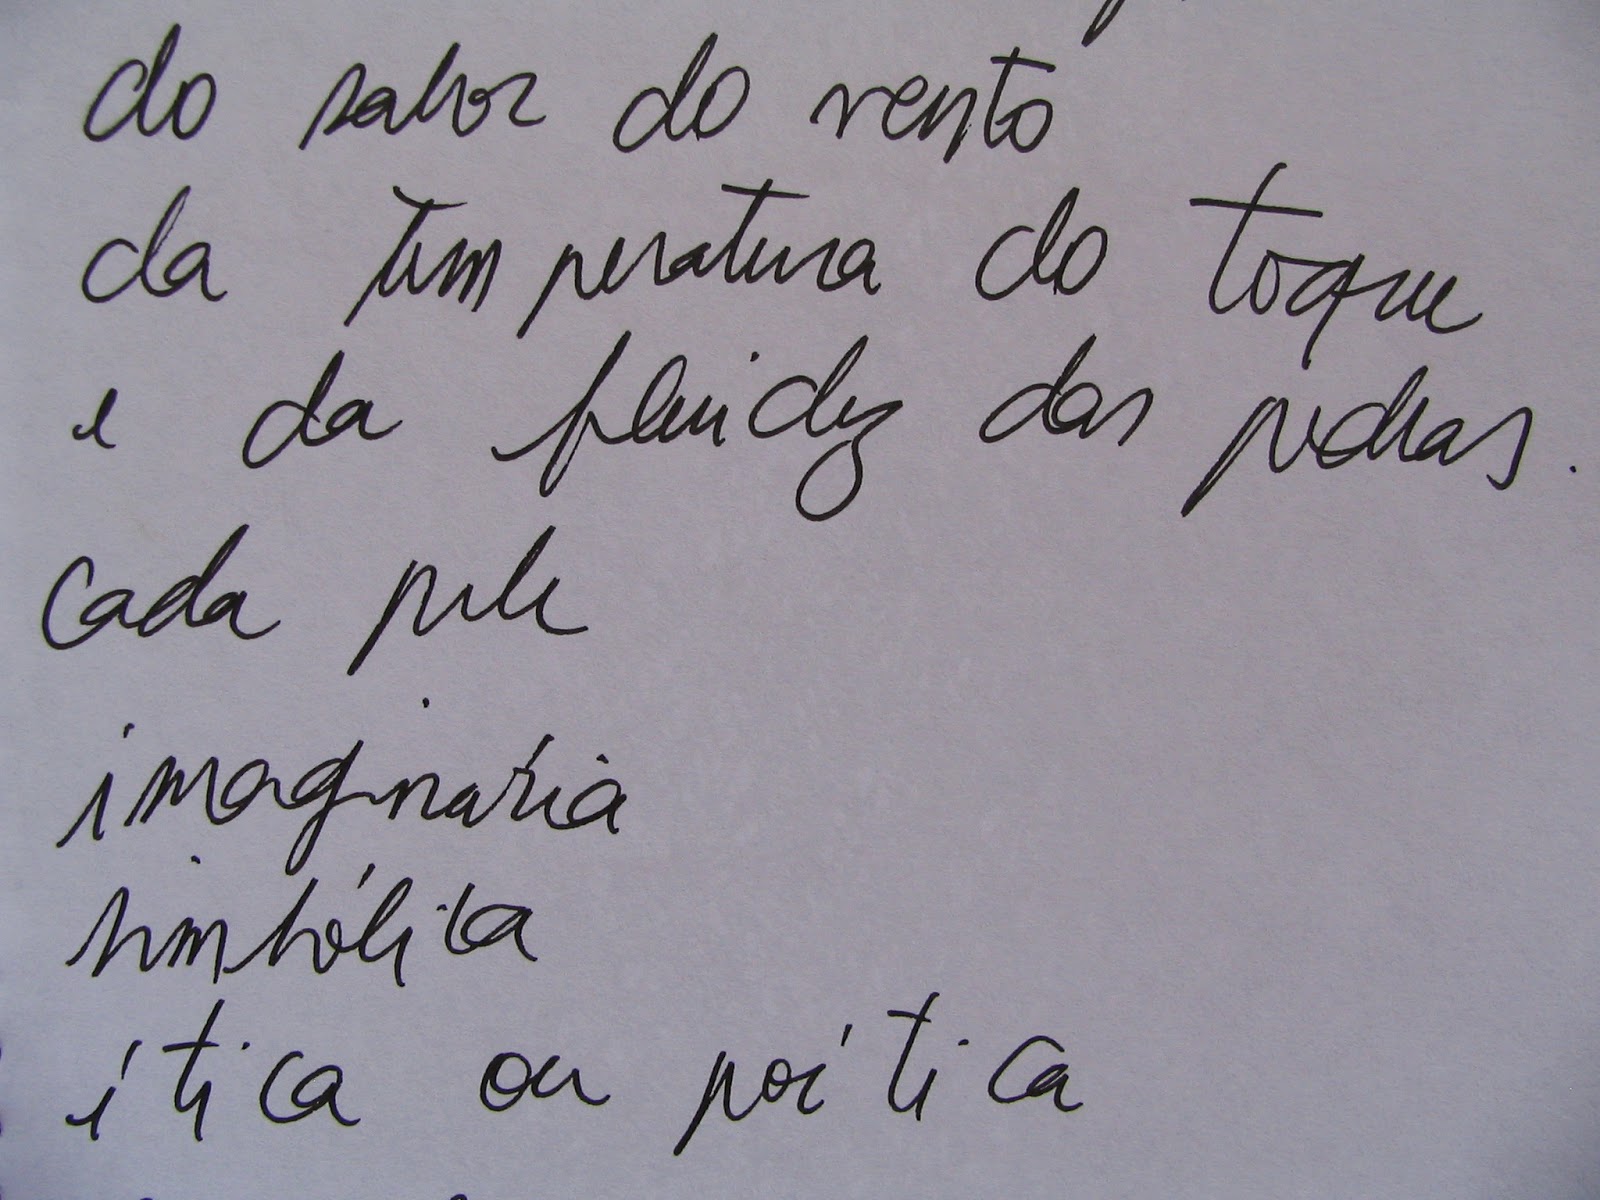 do sabor do vento
da temperatura do toque
e da fluidez das pedras.
cada pele
imaginária
simbólica
ética ou poética